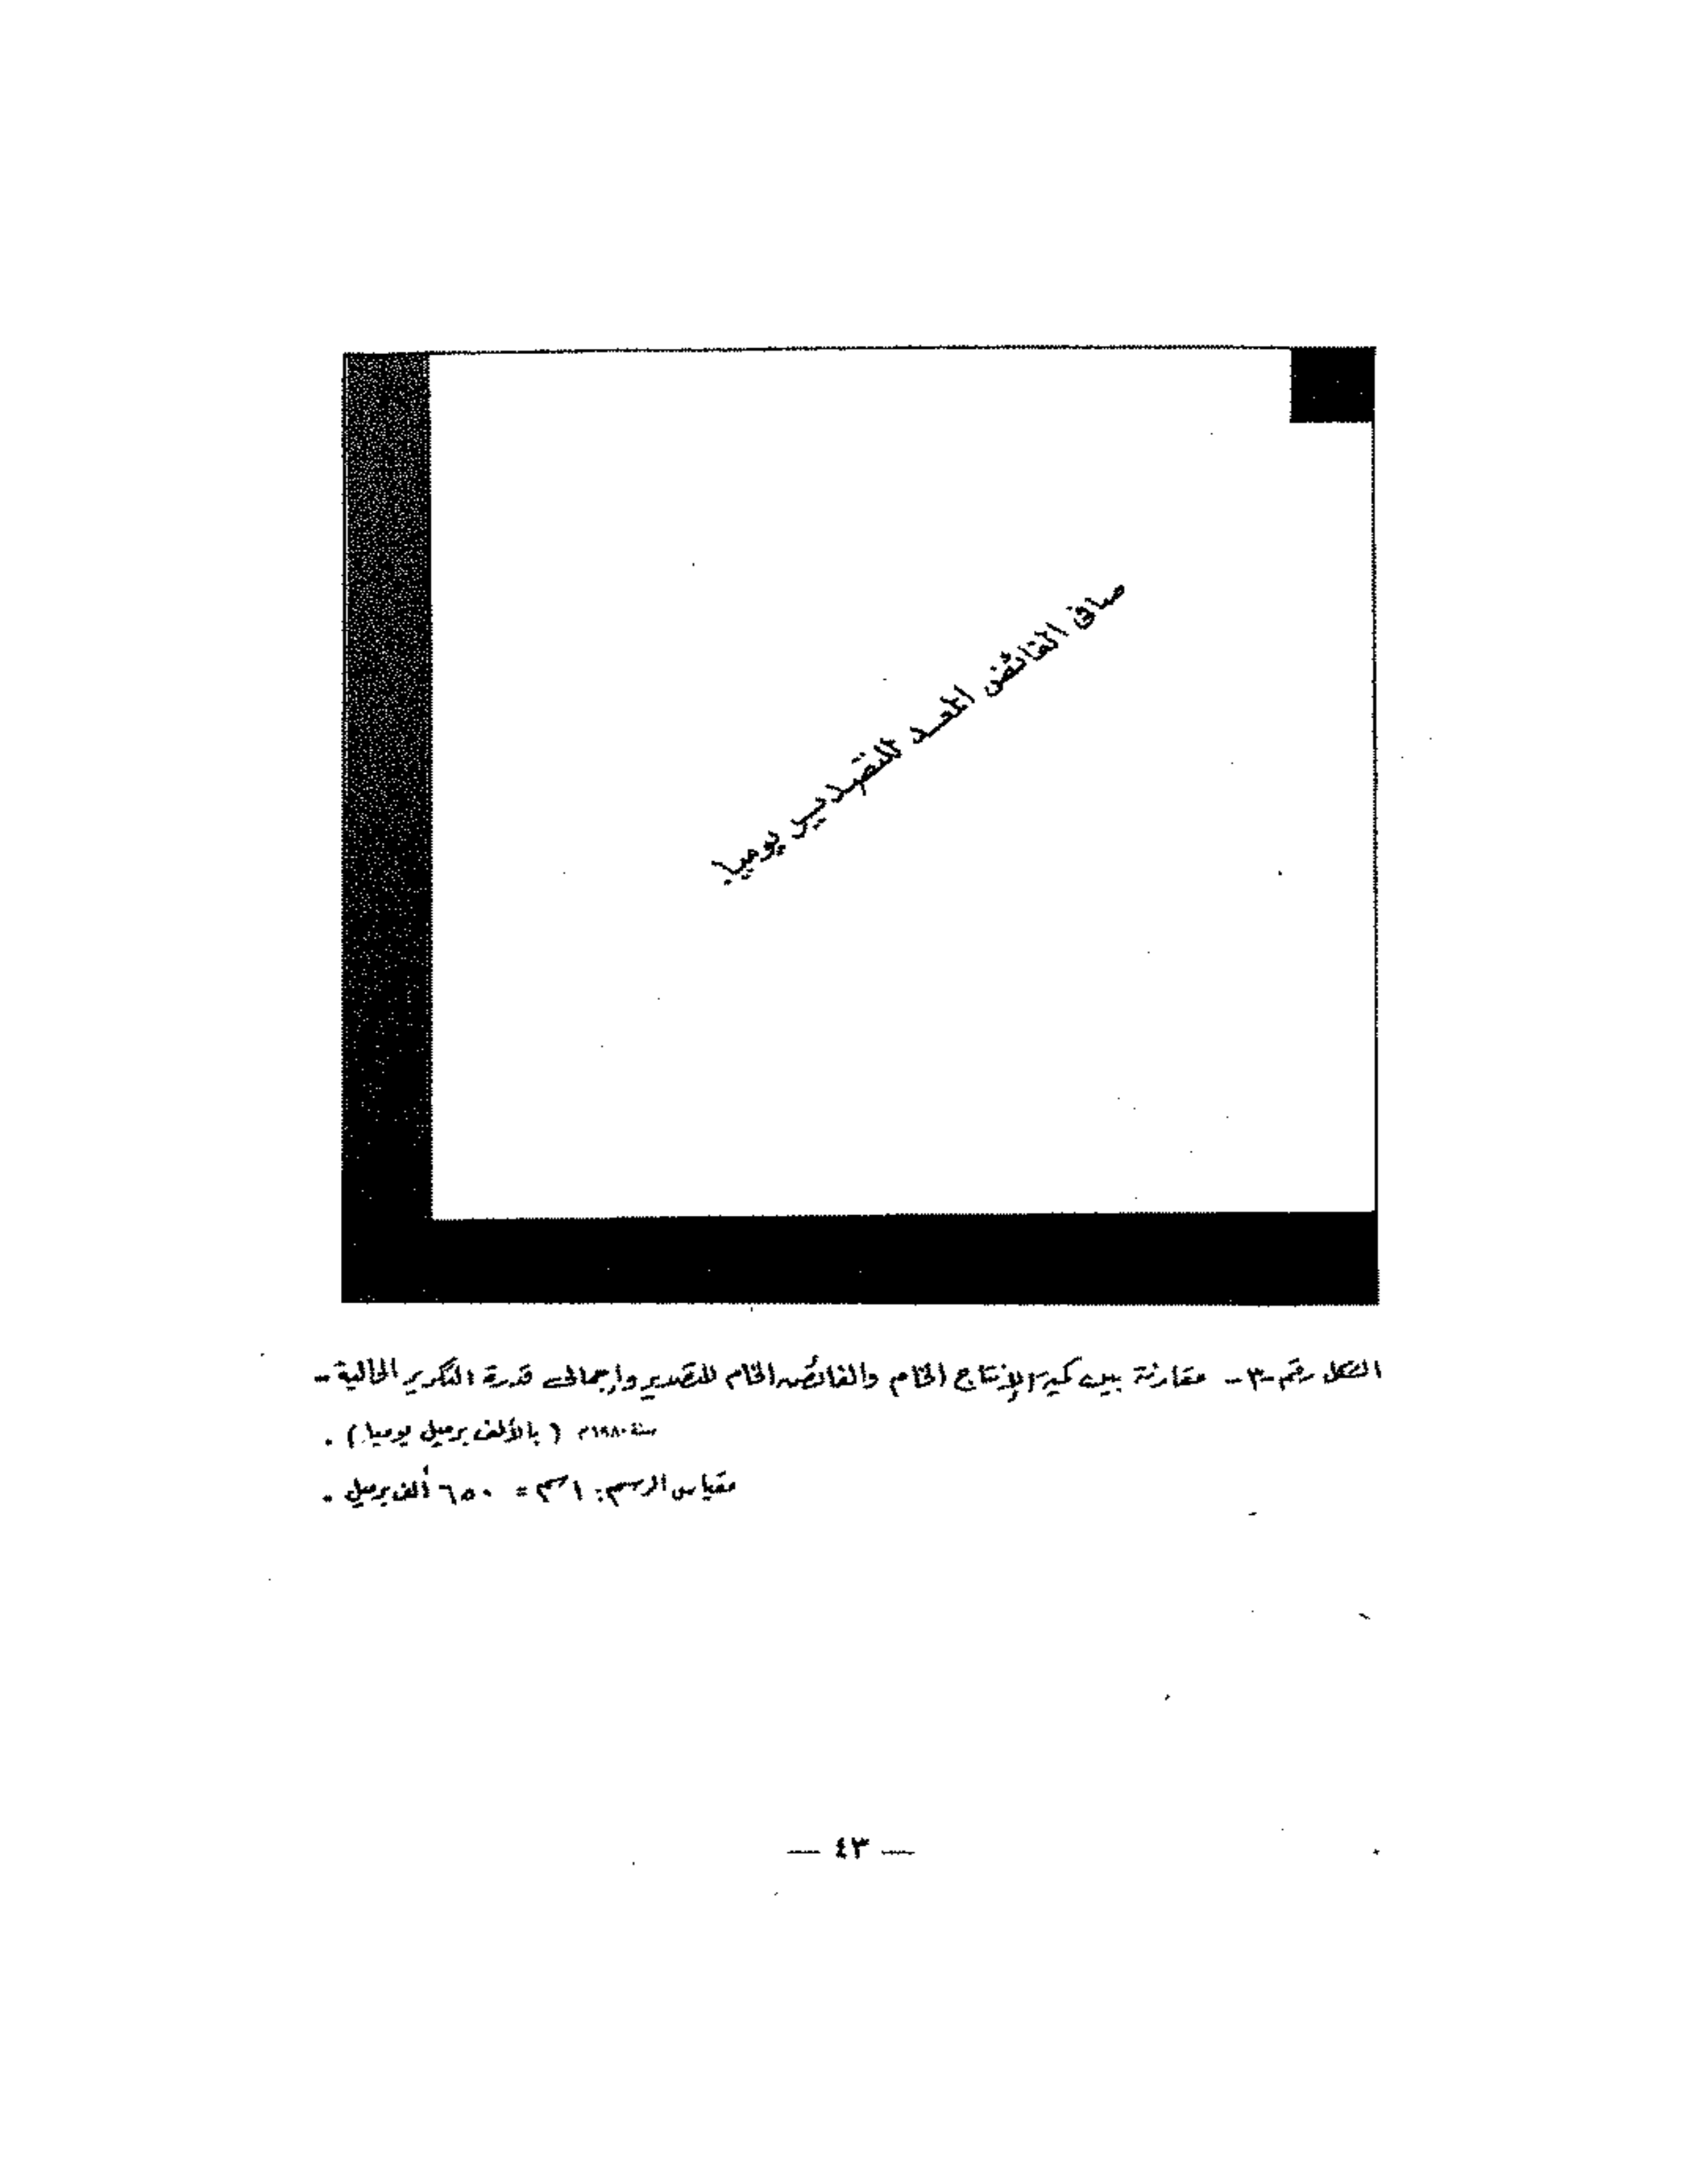 صافى الفائض المعد للتصدير يوميا.
الشكل رقم -٣- مقارنة بين كمية الإنتاج الخام والفائض الخام للتصدير وإجمالى قدرة التكرير الحالية -
سنة ١٩٨٠م (بالألف برميل يوميا) .
مقياس الرسم: ١سم = ٦٥٠ ألف برميل .
— ٤٣ —